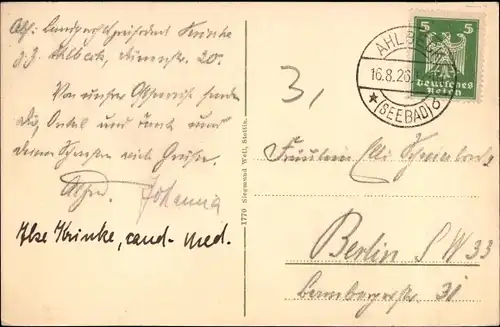 Abs: Landgerichtspräsident Krinke
z. Z. Ahlbeck, Dünenstr. 20.
Von unserer senden
Dir, Onkel und Tante und
Deinen viele Grüße.
Alfred. Johanna
Ilse Krinke, cand. med.
1779 Siegmund Weil, Stettin.
3,
AHLBECK
16.8.26
★ (SEEBAD) b
5 5
Deutsches
Reich
Fräulein
Berlin S W 33
31